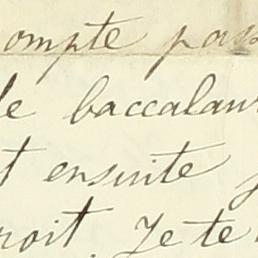 compte pass
le baccalaur
t ensuite
roit. Je te